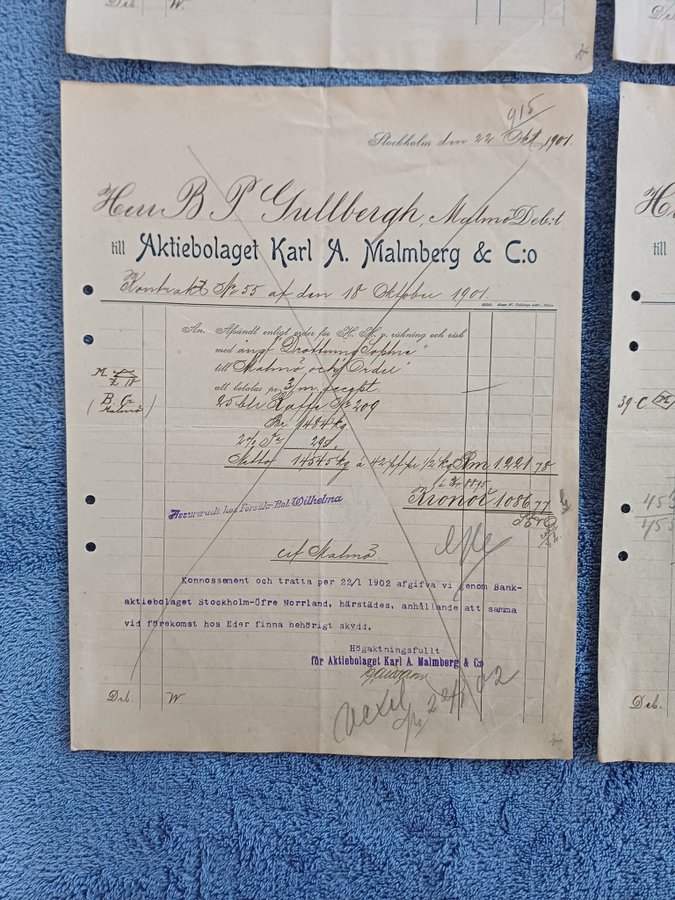 Deb. W.
915
Stockholm den 22 Okt 1901.
Herr B. P. Gullbergh, Malmö Deb:t
till Aktiebolaget Karl A. Malmberg & C:o
Kontrakt No 55 af den 18 Oktober 1901
An. Afsändt enligt order för räkning och risk
med ångf. "Drottning Sophia"
till Malmö och Order
att betalas pr 3/m accept
25 Kaffe No 209
B. G.
Malmö
Br 1484 kg
Netto 1454.5 kg à 42 pf pr 1/2 kg Rm 1221.78
Kronor 1086.77
Assureradt hos Försäkr. Bol. Wilhelma
cif Malmö
Konnossement och tratta per 22/1 1902 afgifva vi genom Bank-
aktiebolaget Stockholm-Öfre Norrland, härstädes, anhållande att samma
vid förekomst hos Eder finna behörigt skydd.
Högaktningsfullt
för Aktiebolaget Karl A. Malmberg & C:o
Deb. W.
vexel pr 22/1 02
39 C
455
455
Deb.
till